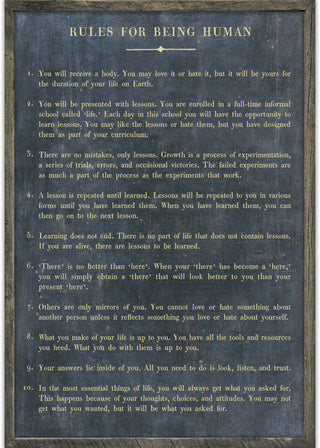 RULES FOR BEING HUMAN
1. You will receive a body. You may love it or hate it, but it will be yours for
the duration of your life on Earth.
2. You will be presented with lessons. You are enrolled in a full-time informal
school called 'life.' Each day in this school you will have the opportunity to
learn lessons. You may like the lessons or hate them, but you have designed
them as part of your curriculum.
3. There are no mistakes, only lessons. Growth is a process of experimentation,
a series of trials, errors, and occasional victories. The failed experiments are
as much a part of the process as the experiments that work.
4. A lesson is repeated until learned. Lessons will be repeated to you in various
forms until you have learned them. When you have learned them, you can
then go on to the next lesson.
5. Learning does not end. There is no part of life that does not contain lessons.
If you are alive, there are lessons to be learned.
6. 'There' is no better than 'here'. When your 'there' has become a 'here,'
you will simply obtain a 'there' that will look better to you than your
present 'here'.
7. Others are only mirrors of you. You cannot love or hate something about
another person unless it reflects something you love or hate about yourself.
8. What you make of your life is up to you. You have all the tools and resources
you need. What you do with them is up to you.
9. Your answers lie inside of you. All you need to do is look, listen, and trust.
10. In the most essential things of life, you will always get what you asked for,
This happens because of your thoughts, choices, and attitudes. You may not
get what you wanted, but it will be what you asked for.